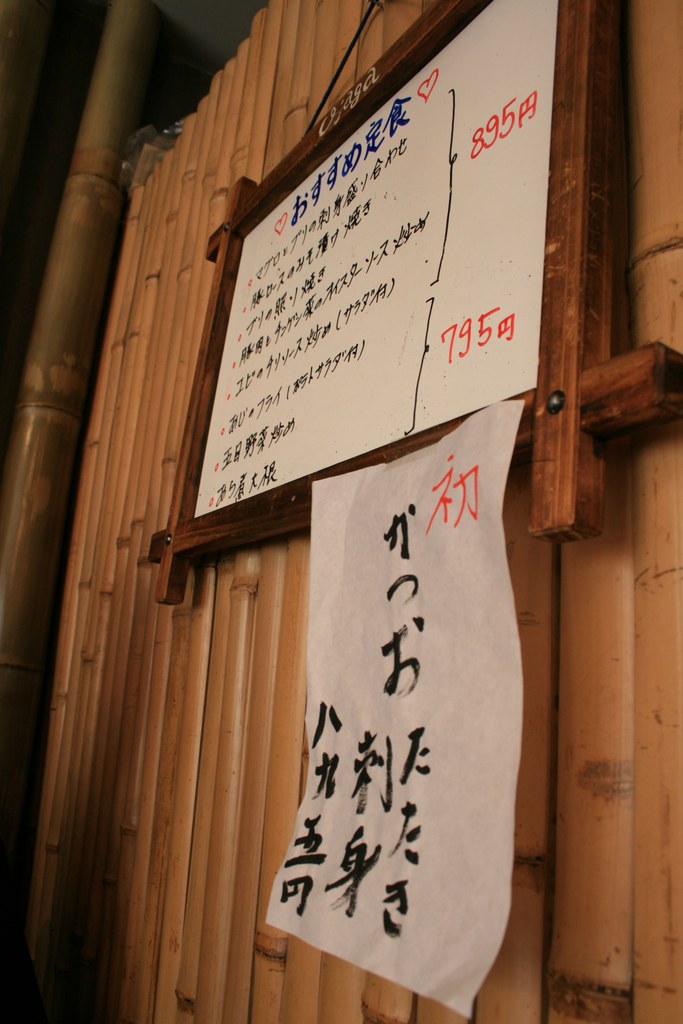 ♡おすすめ定食♡
・マグロとブリの刺身盛り合わせ
・豚ロースのみそ漬け焼き
・ブリの照り焼き
・豚肉とチンゲン菜のオイスターソース炒め
895円
・エビのチリソース炒め(サラダ付)
・あじのフライ(ポテトサラダ付)
・五目野菜炒め
・あら煮大根
795円
初
かつお
たたき
刺身
八九五円